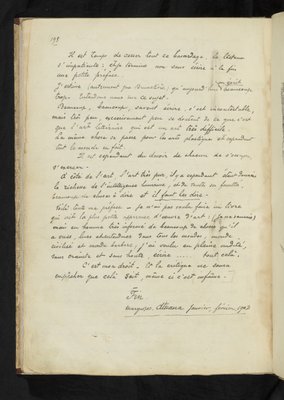 195
Il est temps de cesser tout ce bavardage, le lecteur
s'impatiente : et je termine non sans écrire à la fin
une petite préface.
J'estime (autrement que Brunetière) qu'aujourd'hui on écrit beaucoup
trop. Entendons nous sur ce sujet.
Beaucoup, beaucoup savent écrire, c'est incontestable,
mais très peu, excessivement peu se doutent de ce que c'est
que l'art littéraire qui est un art très difficile.
La même chose se passe pour les arts plastiques et cependant
tout le monde en fait.
Il est cependant du devoir de chacun de s'essayer,
s'exercer.
A côté de l'art, l'art très pur, il y a cependant étant donné
la richesse de l'intelligence humaine, et de toutes ses facultés,
beaucoup de choses à dire et il faut les dire.
Voilà toute ma préface — Je n'ai pas voulu faire un livre
qui ait la plus petite apparence d'œuvre d'art : (Je ne saurais)
mais en homme très informé de beaucoup de choses qu'il
a vues, lues, entendues dans tous les mondes, monde
civilisé et monde barbare, j'ai voulu en pleine nudité,
sans crainte et sans honte écrire ..... tout cela.
C'est mon droit. Et la critique ne saura
empêcher que cela soit, même si c'est infâme.
Fin
Marquises. Atuana Janvier, février 1903